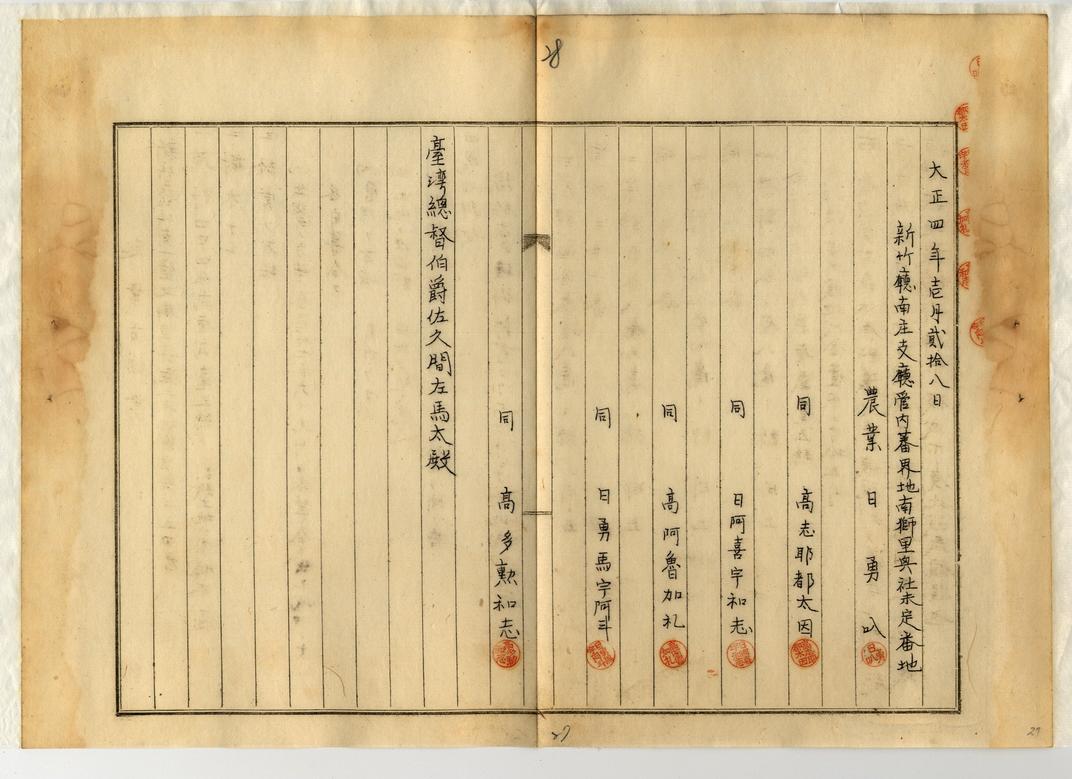 28
大正四年壱月貮拾八日
新竹廳南庄支廳管内蕃界地南獅里興社未定番地
農業　日勇叭
同　高志耶都太因
同　日阿喜宇和志
同　高阿魯加礼
同　日勇馬宇阿斗
同　高多勲和志
臺湾總督伯爵佐久間左馬太殿
27
27